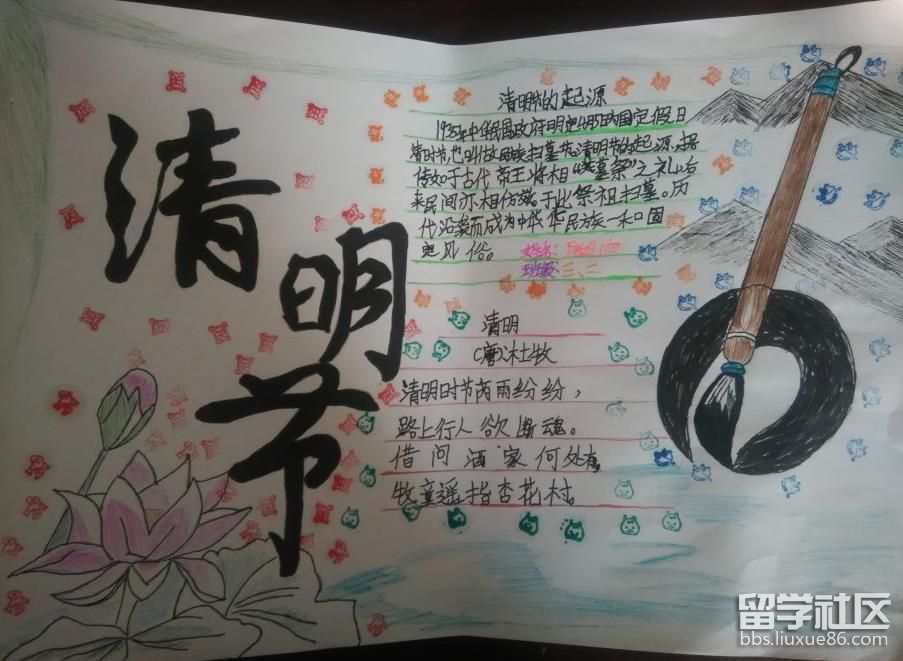 清明节
清明节的起源
1935年中华民国政府明定4月5日为国定假日
清明节,也叫做民族扫墓节。清明节的起源,据
传始于古代帝王将相“墓祭”之礼,后
来民间亦相仿效,于此祭祖扫墓。历
代沿袭而成为中华民族一种固
定风俗。
姓名:
班级:三、二
清明
(唐)杜牧
清明时节芮雨纷纷,
路上行人欲断魂。
借问酒家何处有。
牧童遥指杏花村。
留学社区
bbs.liuxue86.com